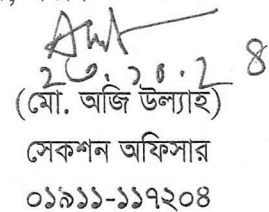 (মো. অজি উল্যাহ)
সেকশন অফিসার
০১৯১১-১১৭২০৪